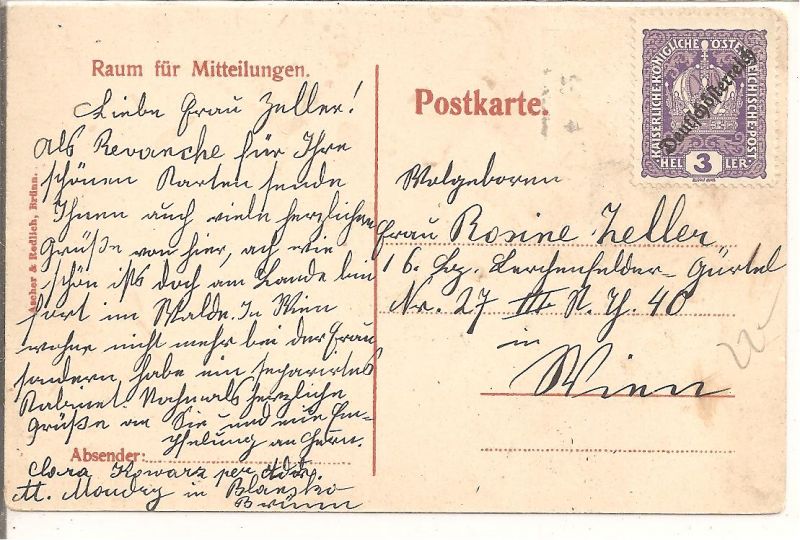 Raum für Mitteilungen.
Liebe Frau Zeller!
Als Revanche für Ihre
schönen Karten sende
Ihnen auch viele herzlichen
Grüße von hier, ach wie
schön ists doch am Lande bin
fort im Walde. In Wien
wohne nicht mehr bei der Frau
sondern, habe ein separirtes
Kabinet. Nochmals herzliche
Grüße an Sie und eine Em-
pfelung an Herrn.
Absender:
Clara Kowarz per Adr
M. Moudry in Blansko
Brünn
Ascher & Redlich, Brünn.
Postkarte.
KAISERLICHE KÖNIGLICHE ÖSTERREICHISCHE POST
Deutschösterreich
HEL 3 LER
Wolgeboren
Frau Rosine Zeller
16. Bz. Lerchenfelder-Gürtel
Nr. 27 III St. T. 40
in
Wien